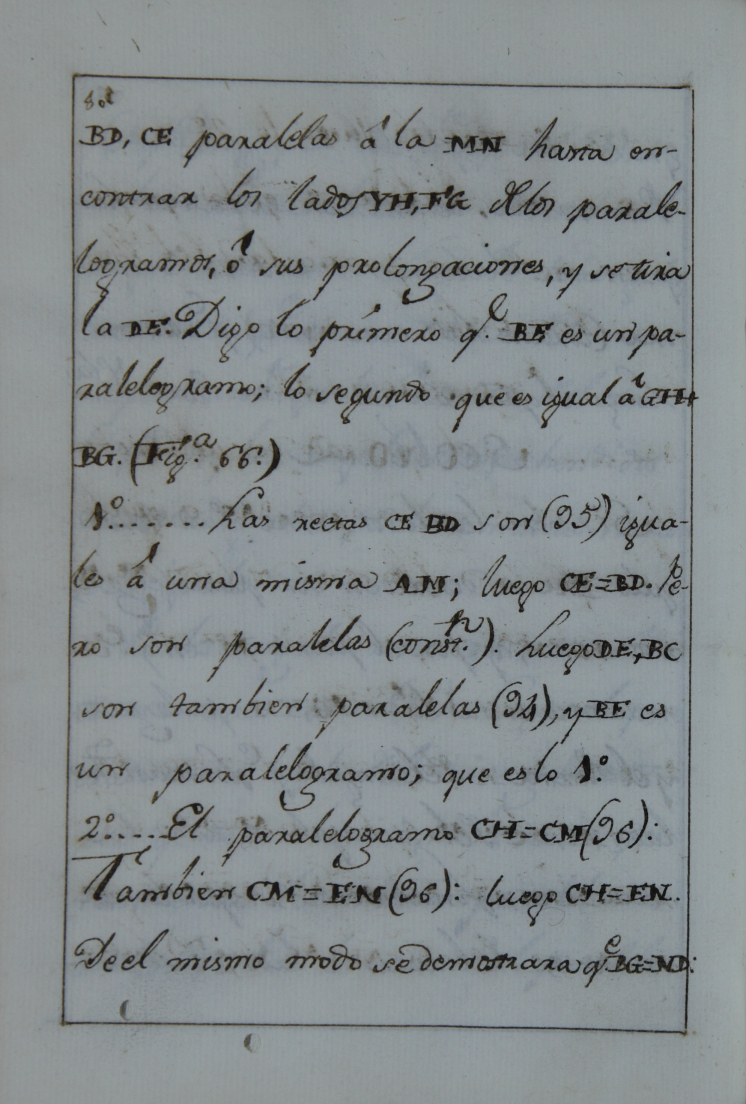 BD, CE paralelas á la MN hasta en-
contrar los lados YH, FG de los parale-
logramos, ó sus prolongaciones, y se tira
la DE. Digo lo primero q.e BE es un pa-
ralelogramo; lo segundo que es igual á CH+
BG. (Fig.a 66.)
1º....... Las rectas CE BD son (95) igua-
les á una misma AM; luego CE=BD. Pe-
ro son paralelas (const.n). Luego DE, BC
son tambien paralelas (94), y BE es
un paralelogramo; que es lo 1º.
2º..... El paralelogramo CH=CM (96):
Tambien CM=EN (96): luego CH=EN.
De el mismo modo se demostrara q.e BG=ND: